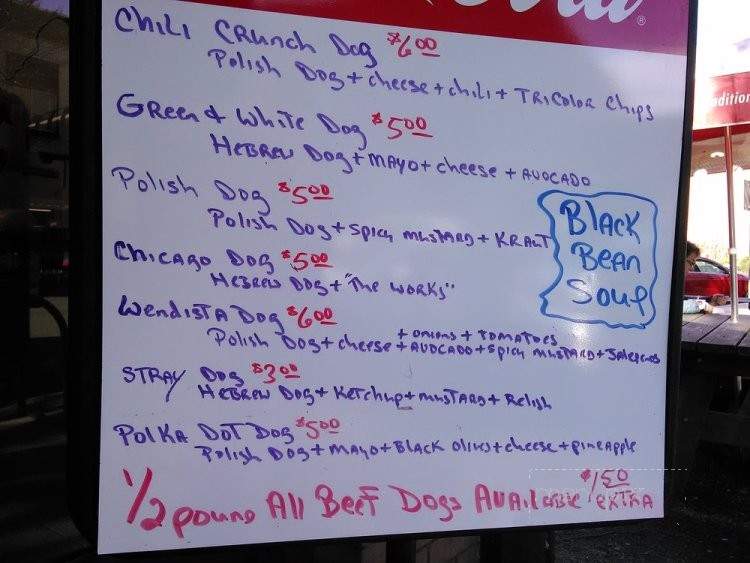 Chili Crunch Dog $6.00
Polish Dog + cheese + chili + TRicolor Chips
Green & White Dog $5.00
Hebrew Dog + mayo + cheese + Avocado
Polish Dog $5.00
Polish Dog + Spicy mustard + KRAUT
Chicago Dog $5.00
Hebrew Dog + "The Works"
WendistA Dog $6.00
+ onions + TOMATOES
Polish Dog + cheese + AVOCADO + Spicy mustard + Jalepenos
STRAY Dog $3.00
Hebrew Dog + Ketchup + mustard + Relish
Polka Dot Dog $5.00
Polish Dog + mayo + Black olives + cheese + pineapple
1/2 pound All Beef Dogs Available $1.50 extra
Black
Bean
Soup